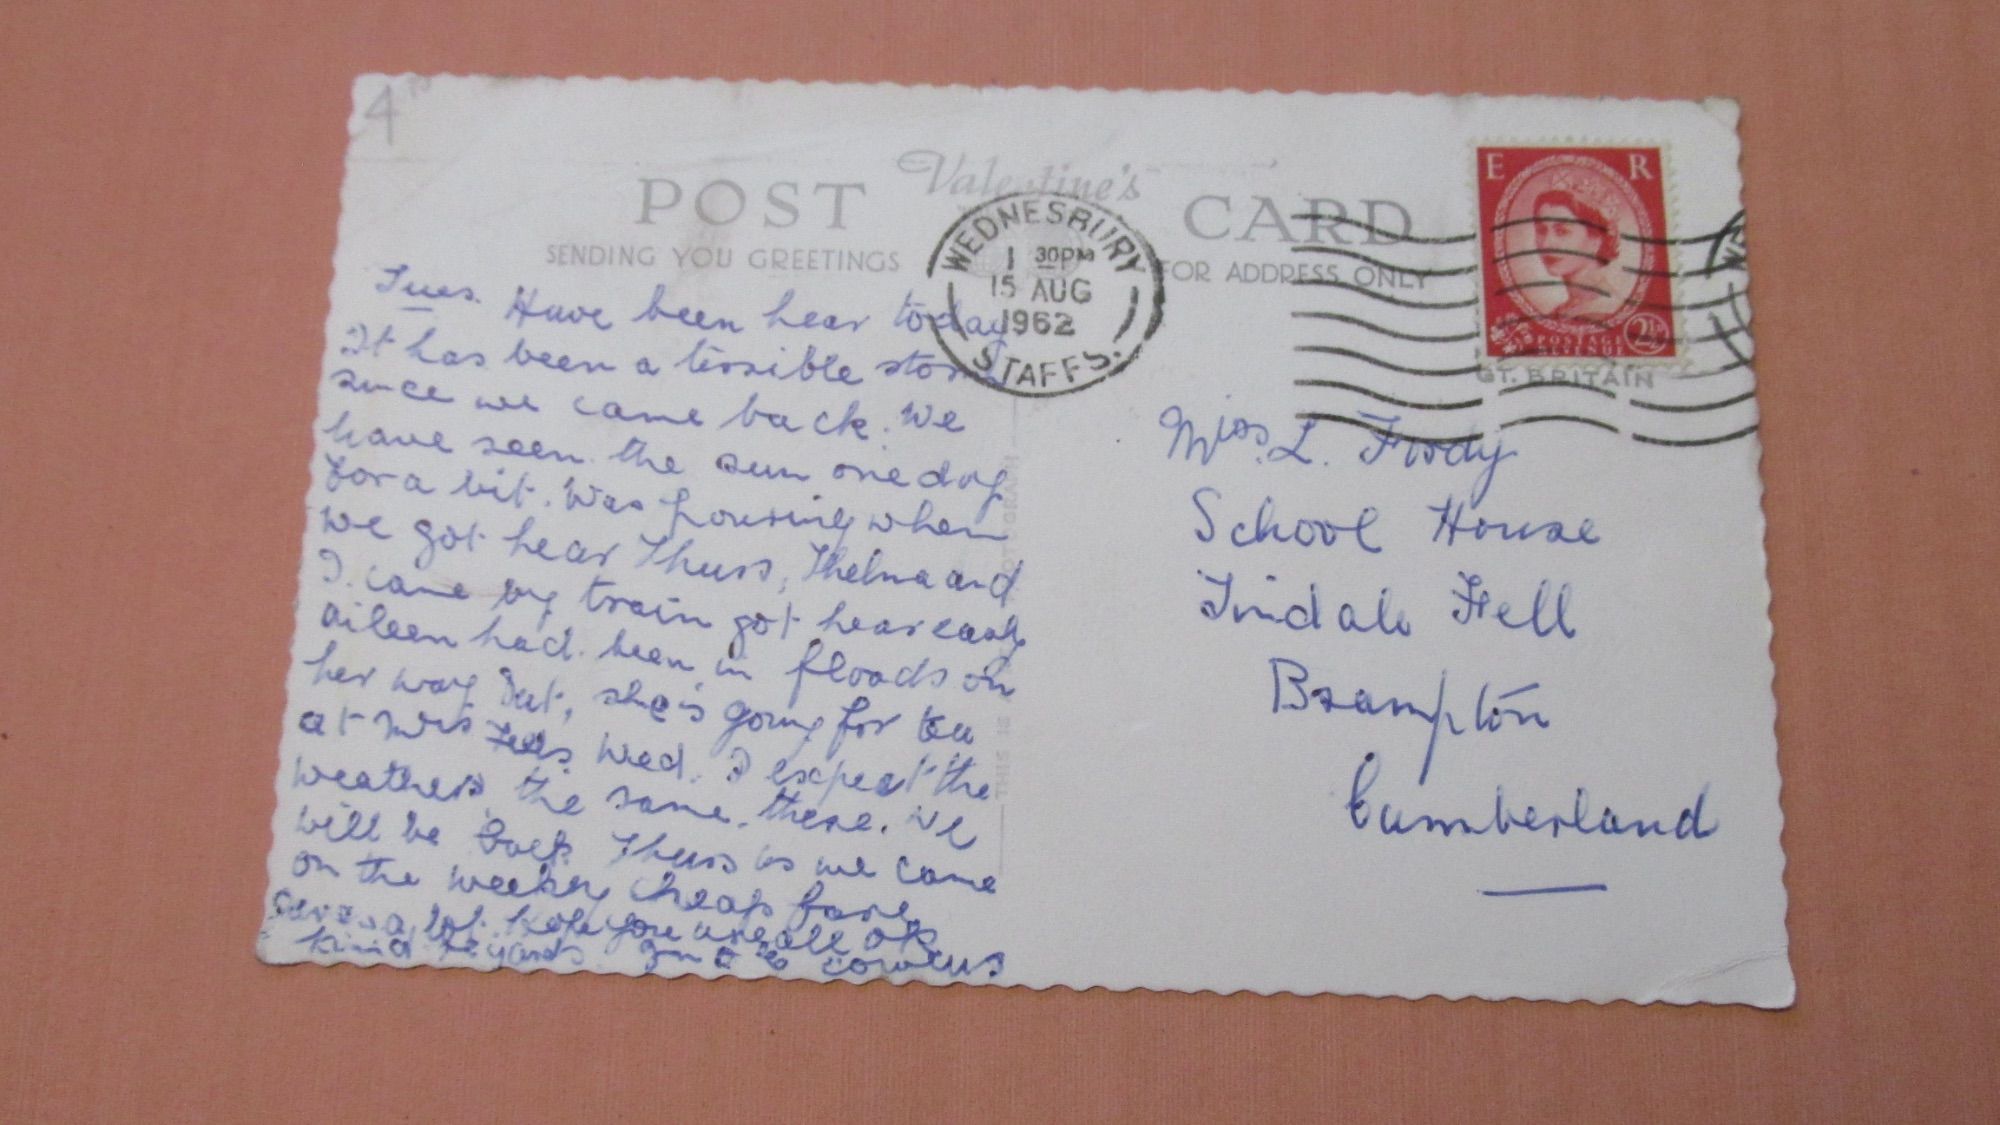 4
Valentine's
POST CARD
SENDING YOU GREETINGS
FOR ADDRESS ONLY
WEDNESBURY
1 30PM
15 AUG
1962
STAFFS.
E R
2½
POSTAGE
REVENUE
GT. BRITAIN
Tues. Have been hear today
It has been a terrible storm
since we came back. We
have seen the sun one day
for a bit. Was pouring when
we got hear Thurs, Thelma and
I came by train got hear early
aileen had been in floods on
her way but, she is going for tea
at Mrs Wed. I expect the
weather the same there. We
will be back Thurs as we came
on the weekly cheap fare
a lot. Hope you are all OK
Kind regards Cowens
THIS IS A
Miss. L. Frody
School House
Tindale Fell
Brampton
Cumberland